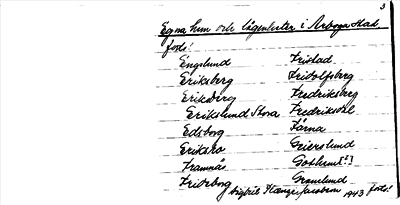 3
Egna hem och lägenheter i Arboga stad.
forts!
Englund Fristad
Eriksberg Fridolfsberg
Eriksberg Fredriksberg
Erikslund Stora Fredriksdal
Edsborg Färna
Eriksro Geierslund
Framnäs Gotlund[?]
Frideborg Granlund
Sigfrid Hænge Jacobson 1943 forts!